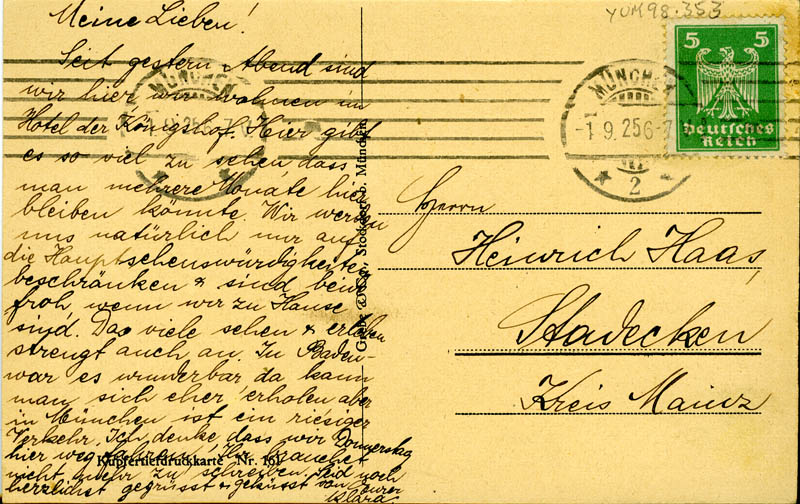 YUM98.353
Meine Lieben!
Seit gestern Abend sind
wir hier, wir wohnen im
Hotel der Königshof. Hier gibt
es so viel zu sehen dass
man mehrere Monate hier
bleiben könnte. Wir werden
uns natürlich nur auf
die Hauptsehenswürdigkeiten
beschränken & sind
froh, wenn wir zu Hause
sind. Das viele sehen & erleben
strengt auch an. In Baden-
war es wunderbar da kann
man sich eher erholen aber
in München ist ein riesiger
Verkehr. Ich denke, dass wir Donnerstag
hier weg fahren. Ihr braucht
nicht mehr zu schreiben. Seid noch
herzlichst gegrüsst & geküsst von Eurer
Klara.
Kupfertiefdruckkarte Nr. 161
Stockdorf b. München
MÜNCHEN
1.9.25 6-7
2
MÜNCHEN
-1.9.25 6-7
2
5 5
Deutsches
Reich
Herrn
Heinrich Haas,
Stadecken
Kreis Mainz